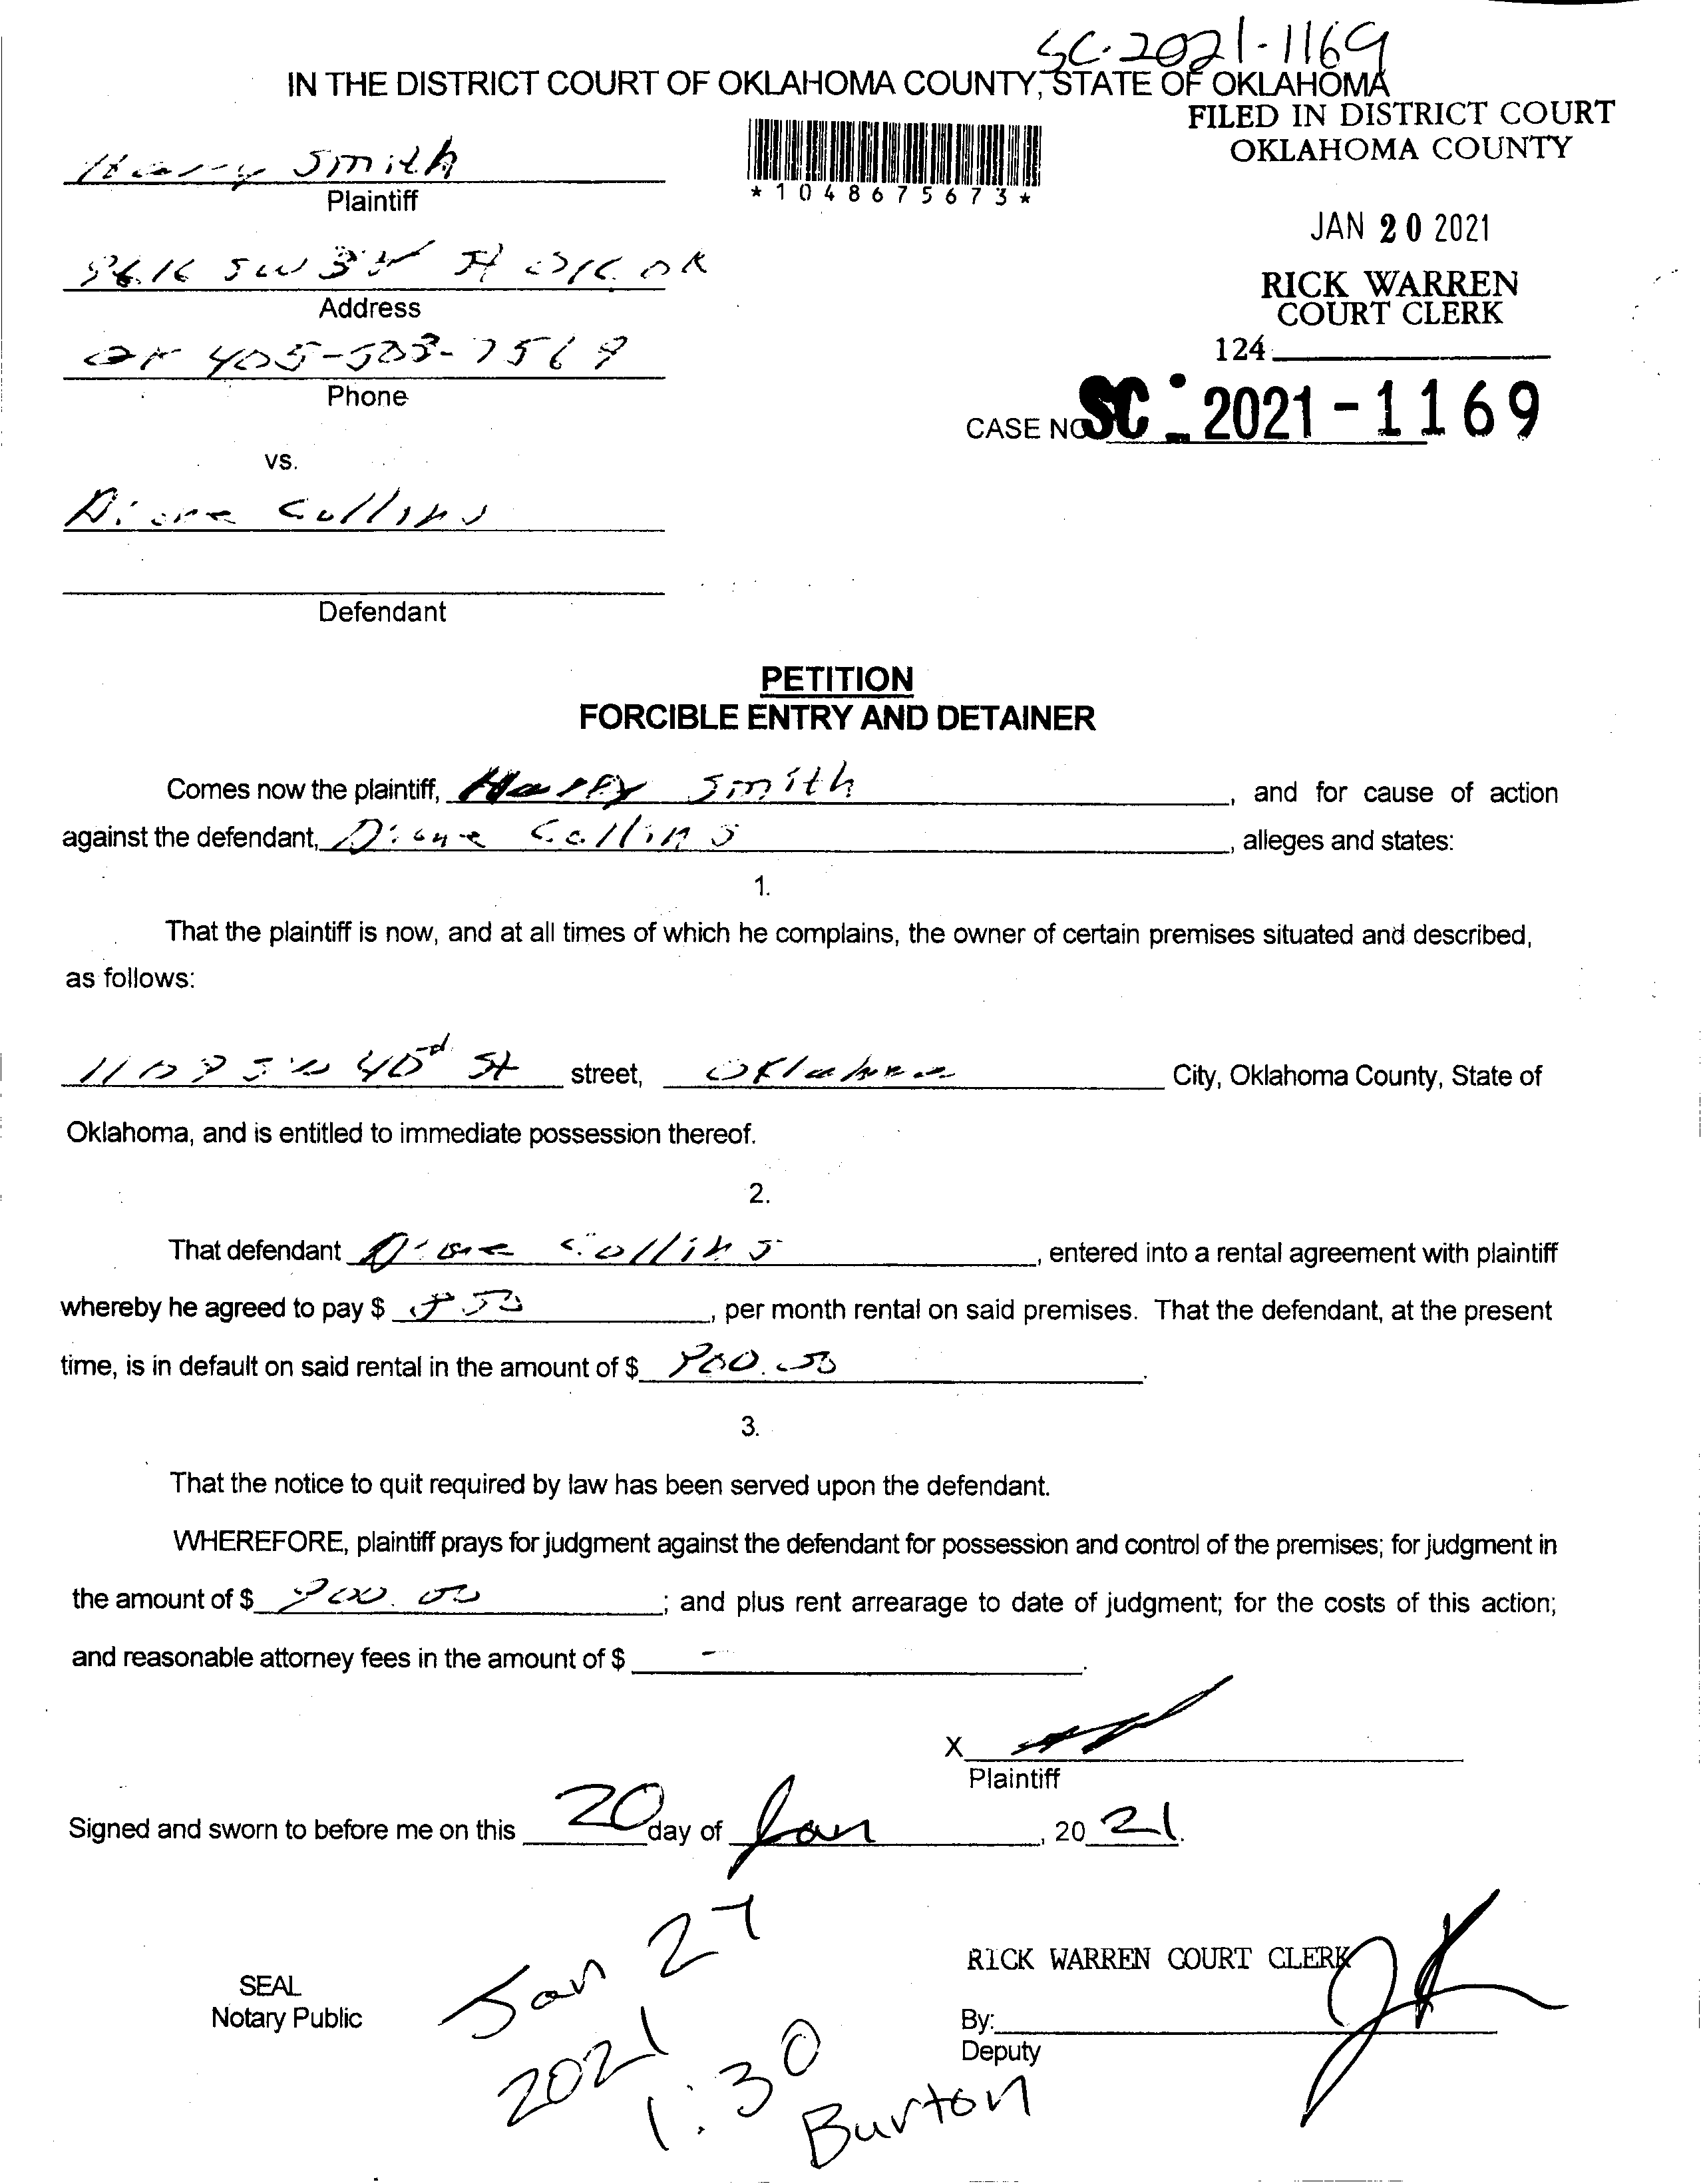 SC-2021-1169
IN THE DISTRICT COURT OF OKLAHOMA COUNTY, STATE OF OKLAHOMA
FILED IN DISTRICT COURT
OKLAHOMA COUNTY
Harry Smith
Plaintiff
*1048675673*
JAN 20 2021
SW St OKC OK
Address
RICK WARREN
COURT CLERK
124
405-503-7569
Phone
CASE NO SC - 2021-1169
vs.
Diane Collins
Defendant
PETITION
FORCIBLE ENTRY AND DETAINER
Comes now the plaintiff, Harry Smith, and for cause of action
against the defendant, Diane Collins, alleges and states:
1.
That the plaintiff is now, and at all times of which he complains, the owner of certain premises situated and described,
as follows:
SW 40 St street, Oklahoma City, Oklahoma County, State of
Oklahoma, and is entitled to immediate possession thereof.
2.
That defendant Diane Collins, entered into a rental agreement with plaintiff
whereby he agreed to pay $, per month rental on said premises. That the defendant, at the present
time, is in default on said rental in the amount of $.
3.
That the notice to quit required by law has been served upon the defendant.
WHEREFORE, plaintiff prays for judgment against the defendant for possession and control of the premises; for judgment in
the amount of $; and plus rent arrearage to date of judgment; for the costs of this action;
and reasonable attorney fees in the amount of $ -.
X
Plaintiff
Signed and sworn to before me on this 20 day of Jan, 20 21.
Jan 27
2021
1:30
Burton
SEAL
Notary Public
RICK WARREN COURT CLERK
By:
Deputy